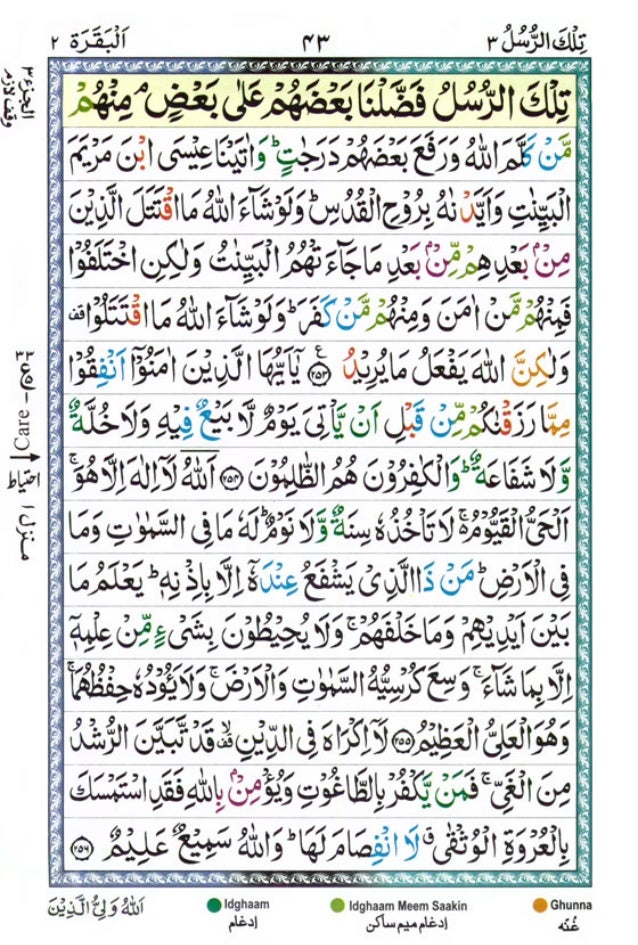 تِلْكَ الرُّسُلُ ٣
٤٣
اَلْبَقَرَة ٢
الجزء ٣
وقف لازم
تِلْكَ الرُّسُلُ فَضَّلْنَا بَعْضَهُمْ عَلٰى بَعْضٍ ۘ مِنْهُمْ
مَّنْ كَلَّمَ اللّٰهُ وَرَفَعَ بَعْضَهُمْ دَرَجٰتٍ ؕ وَاٰتَيْنَا عِيْسَى ابْنَ مَرْيَمَ
الْبَيِّنٰتِ وَاَيَّدْنٰهُ بِرُوْحِ الْقُدُسِ ؕ وَلَوْ شَآءَ اللّٰهُ مَا اقْتَتَلَ الَّذِيْنَ
مِنْۢ بَعْدِهِمْ مِّنْۢ بَعْدِ مَا جَآءَتْهُمُ الْبَيِّنٰتُ وَلٰكِنِ اخْتَلَفُوْا
فَمِنْهُمْ مَّنْ اٰمَنَ وَمِنْهُمْ مَّنْ كَفَرَ ؕ وَلَوْ شَآءَ اللّٰهُ مَا اقْتَتَلُوْا قف
وَلٰكِنَّ اللّٰهَ يَفْعَلُ مَا يُرِيْدُ ﴿٢٥٣﴾ ع يٰۤاَيُّهَا الَّذِيْنَ اٰمَنُوْۤا اَنْفِقُوْا
مِمَّا رَزَقْنٰكُمْ مِّنْ قَبْلِ اَنْ يَّاْتِيَ يَوْمٌ لَّا بَيْعٌ فِيْهِ وَلَا خُلَّةٌ
وَّلَا شَفَاعَةٌ ؕ وَالْكٰفِرُوْنَ هُمُ الظّٰلِمُوْنَ ﴿٢٥٤﴾ اَللّٰهُ لَاۤ اِلٰهَ اِلَّا هُوَ ۚ
اَلْحَيُّ الْقَيُّوْمُ ۚ لَا تَاْخُذُهٗ سِنَةٌ وَّلَا نَوْمٌ ؕ لَهٗ مَا فِي السَّمٰوٰتِ وَمَا
فِي الْاَرْضِ ؕ مَنْ ذَا الَّذِيْ يَشْفَعُ عِنْدَهٗۤ اِلَّا بِاِذْنِهٖ ؕ يَعْلَمُ مَا
بَيْنَ اَيْدِيْهِمْ وَمَا خَلْفَهُمْ ۚ وَلَا يُحِيْطُوْنَ بِشَيْءٍ مِّنْ عِلْمِهٖۤ
اِلَّا بِمَا شَآءَ ۚ وَسِعَ كُرْسِيُّهُ السَّمٰوٰتِ وَالْاَرْضَ ۚ وَلَا يَئُوْدُهٗ حِفْظُهُمَا ۚ
وَهُوَ الْعَلِيُّ الْعَظِيْمُ ﴿٢٥٥﴾ لَاۤ اِكْرَاهَ فِي الدِّيْنِ قف ۙ قَدْ تَّبَيَّنَ الرُّشْدُ
مِنَ الْغَيِّ ۚ فَمَنْ يَّكْفُرْ بِالطَّاغُوْتِ وَيُؤْمِنْۢ بِاللّٰهِ فَقَدِ اسْتَمْسَكَ
بِالْعُرْوَةِ الْوُثْقٰى ق لَا انْفِصَامَ لَهَا ؕ وَاللّٰهُ سَمِيْعٌ عَلِيْمٌ ﴿٢٥٦﴾
Care
احتياط
منزل ١
اَللّٰهُ وَلِيُّ الَّذِيْنَ
Idghaam
إدغام
Idghaam Meem Saakin
إدغام ميم ساكن
Ghunna
غُنّه